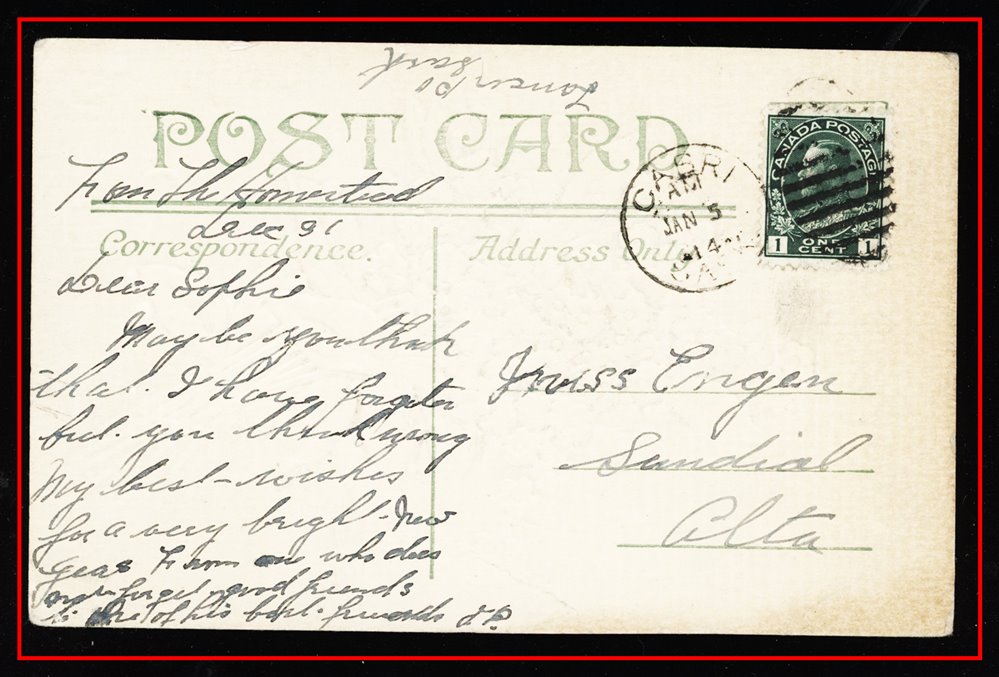 Sask
POST CARD
From The Homestead
Dec 31
Correspondence.
Address Only
Dear Sophie
May be you think
that I have forgoten
but you think wrong
My best wishes
for a very brigh New
Year From one who does
not forget good friends
to one of his best friends J.P.
CABRI
AM
JAN 5
14
SASK
CANADA POSTAGE
1 ONE CENT 1
Miss Engen
Sundial
Alta